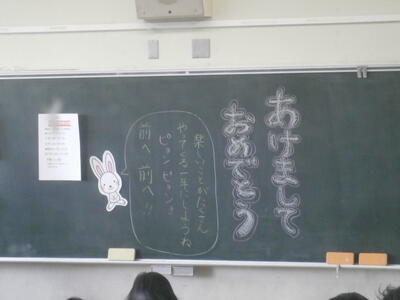 あけまして
おめでとう
楽しいことがたくさん
やってくる一年にしようね
ピョンピョンと
前へ前へ!!